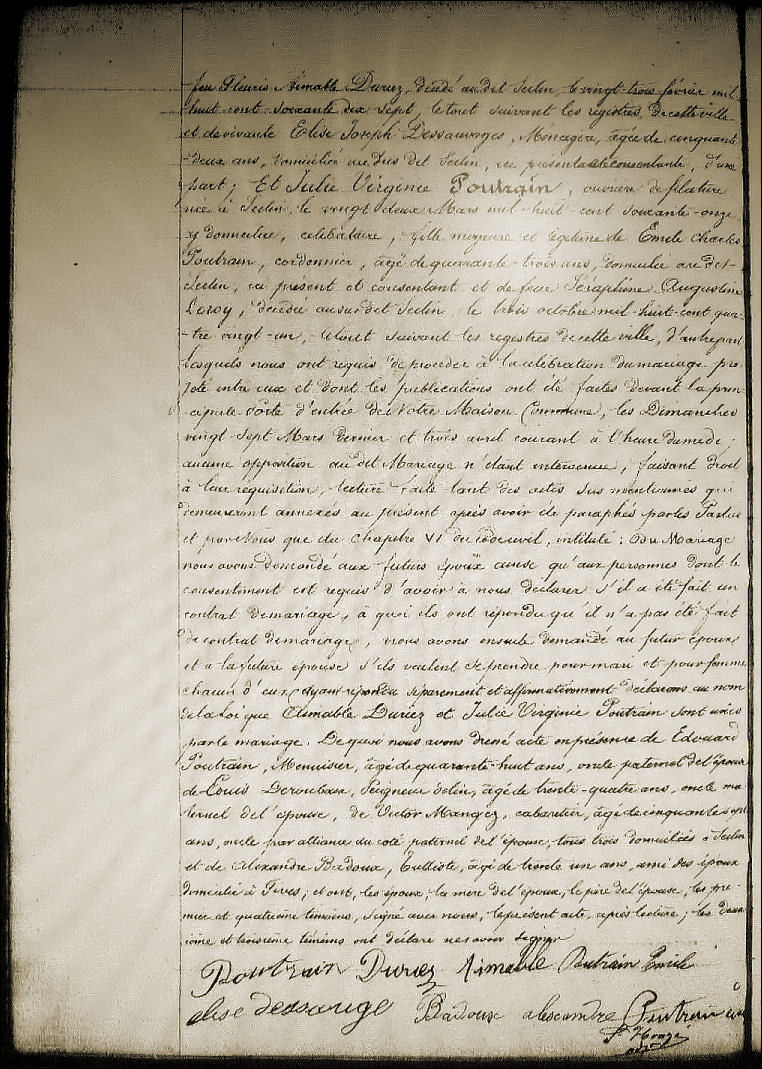 feu Fleuris Aimable Duriez, décédé au dit Seclin, le vingt-trois février mil
huit cent soixante dix sept, le tout suivant les registres de cette ville
et de vivante Elise Joseph Dessauvages, Ménagère, âgée de cinquante
-deux ans, domiciliée au dit Seclin, ici présente et consentante, d'une
part; Et Julie Virginie Poutrain, ouvrière de filature
née à Seclin, le vingt deux Mars mil-huit-cent soixante-onze
y domiciliée, célibataire, fille majeure et légitime de Emile Charles
Poutrain, cordonnier, âgé de quarante-trois ans, domicilié au dit-
Seclin, ici présent et consentant et de feue Séraphine Augustine
Leroy, décédée au sus dit Seclin, le trois octobre mil-huit-cent qua-
-tre vingt-un, le tout suivant les registres de cette ville, d'autre part
Lesquels nous ont requis de procéder à la célébration du mariage pro-
jeté entre eux et dont les publications ont été faites devant la prin-
cipale porte d'entrée de Notre Maison Commune, les Dimanches
vingt-sept Mars dernier et trois avril courant à l'heure de midi;
aucune opposition au dit Mariage n'étant intervenue, faisant droit
à leur réquisition, lecture faite tant des actes sus mentionnés qui
demeureront annexés au présent après avoir été paraphés par les Parties
et par Nous que du chapitre VI du code civil, intitulé: Du Mariage
nous avons demandé aux futurs époux ainsi qu'aux personnes dont le
consentement est requis d'avoir à nous déclarer s'il a été fait un
contrat de mariage, à quoi ils ont répondu qu'il n'a pas été fait
de contrat de mariage, nous avons ensuite demandé au futur époux
et à la future épouse s'ils veulent se prendre pour mari et pour femme
chacun d'eux ayant répondu séparément et affirmativement déclarons au nom
de la Loi que Aimable Duriez et Julie Virginie Poutrain sont unis
par le mariage. De quoi nous avons dressé acte en présence de Edouard
Poutrain, Menuisier, âgé de quarante-huit ans, oncle paternel de l'épouse
de Louis Deroubaix, Peigneur de lin, âgé de trente-quatre ans, oncle ma
ternel de l'épouse, de Victor Mangez, cabaretier, âgé de cinquante sept
ans, oncle par alliance du coté paternel de l'épouse, tous trois domiciliés à Seclin
et de Alexandre Badoux, Tulliste, âgé de trente un ans, ami des époux
domicilié à Fives; et ont, les époux, la mère de l'époux, le père de l'épouse, les pre-
mier et quatrième témoins, signé avec nous, le présent acte, après lecture; les deux-
ième et troisième témoins ont déclaré ne savoir signer
Poutrain Duriez Aimable Poutrain Emile
elise dessauge Badoux alescandre Poutrain